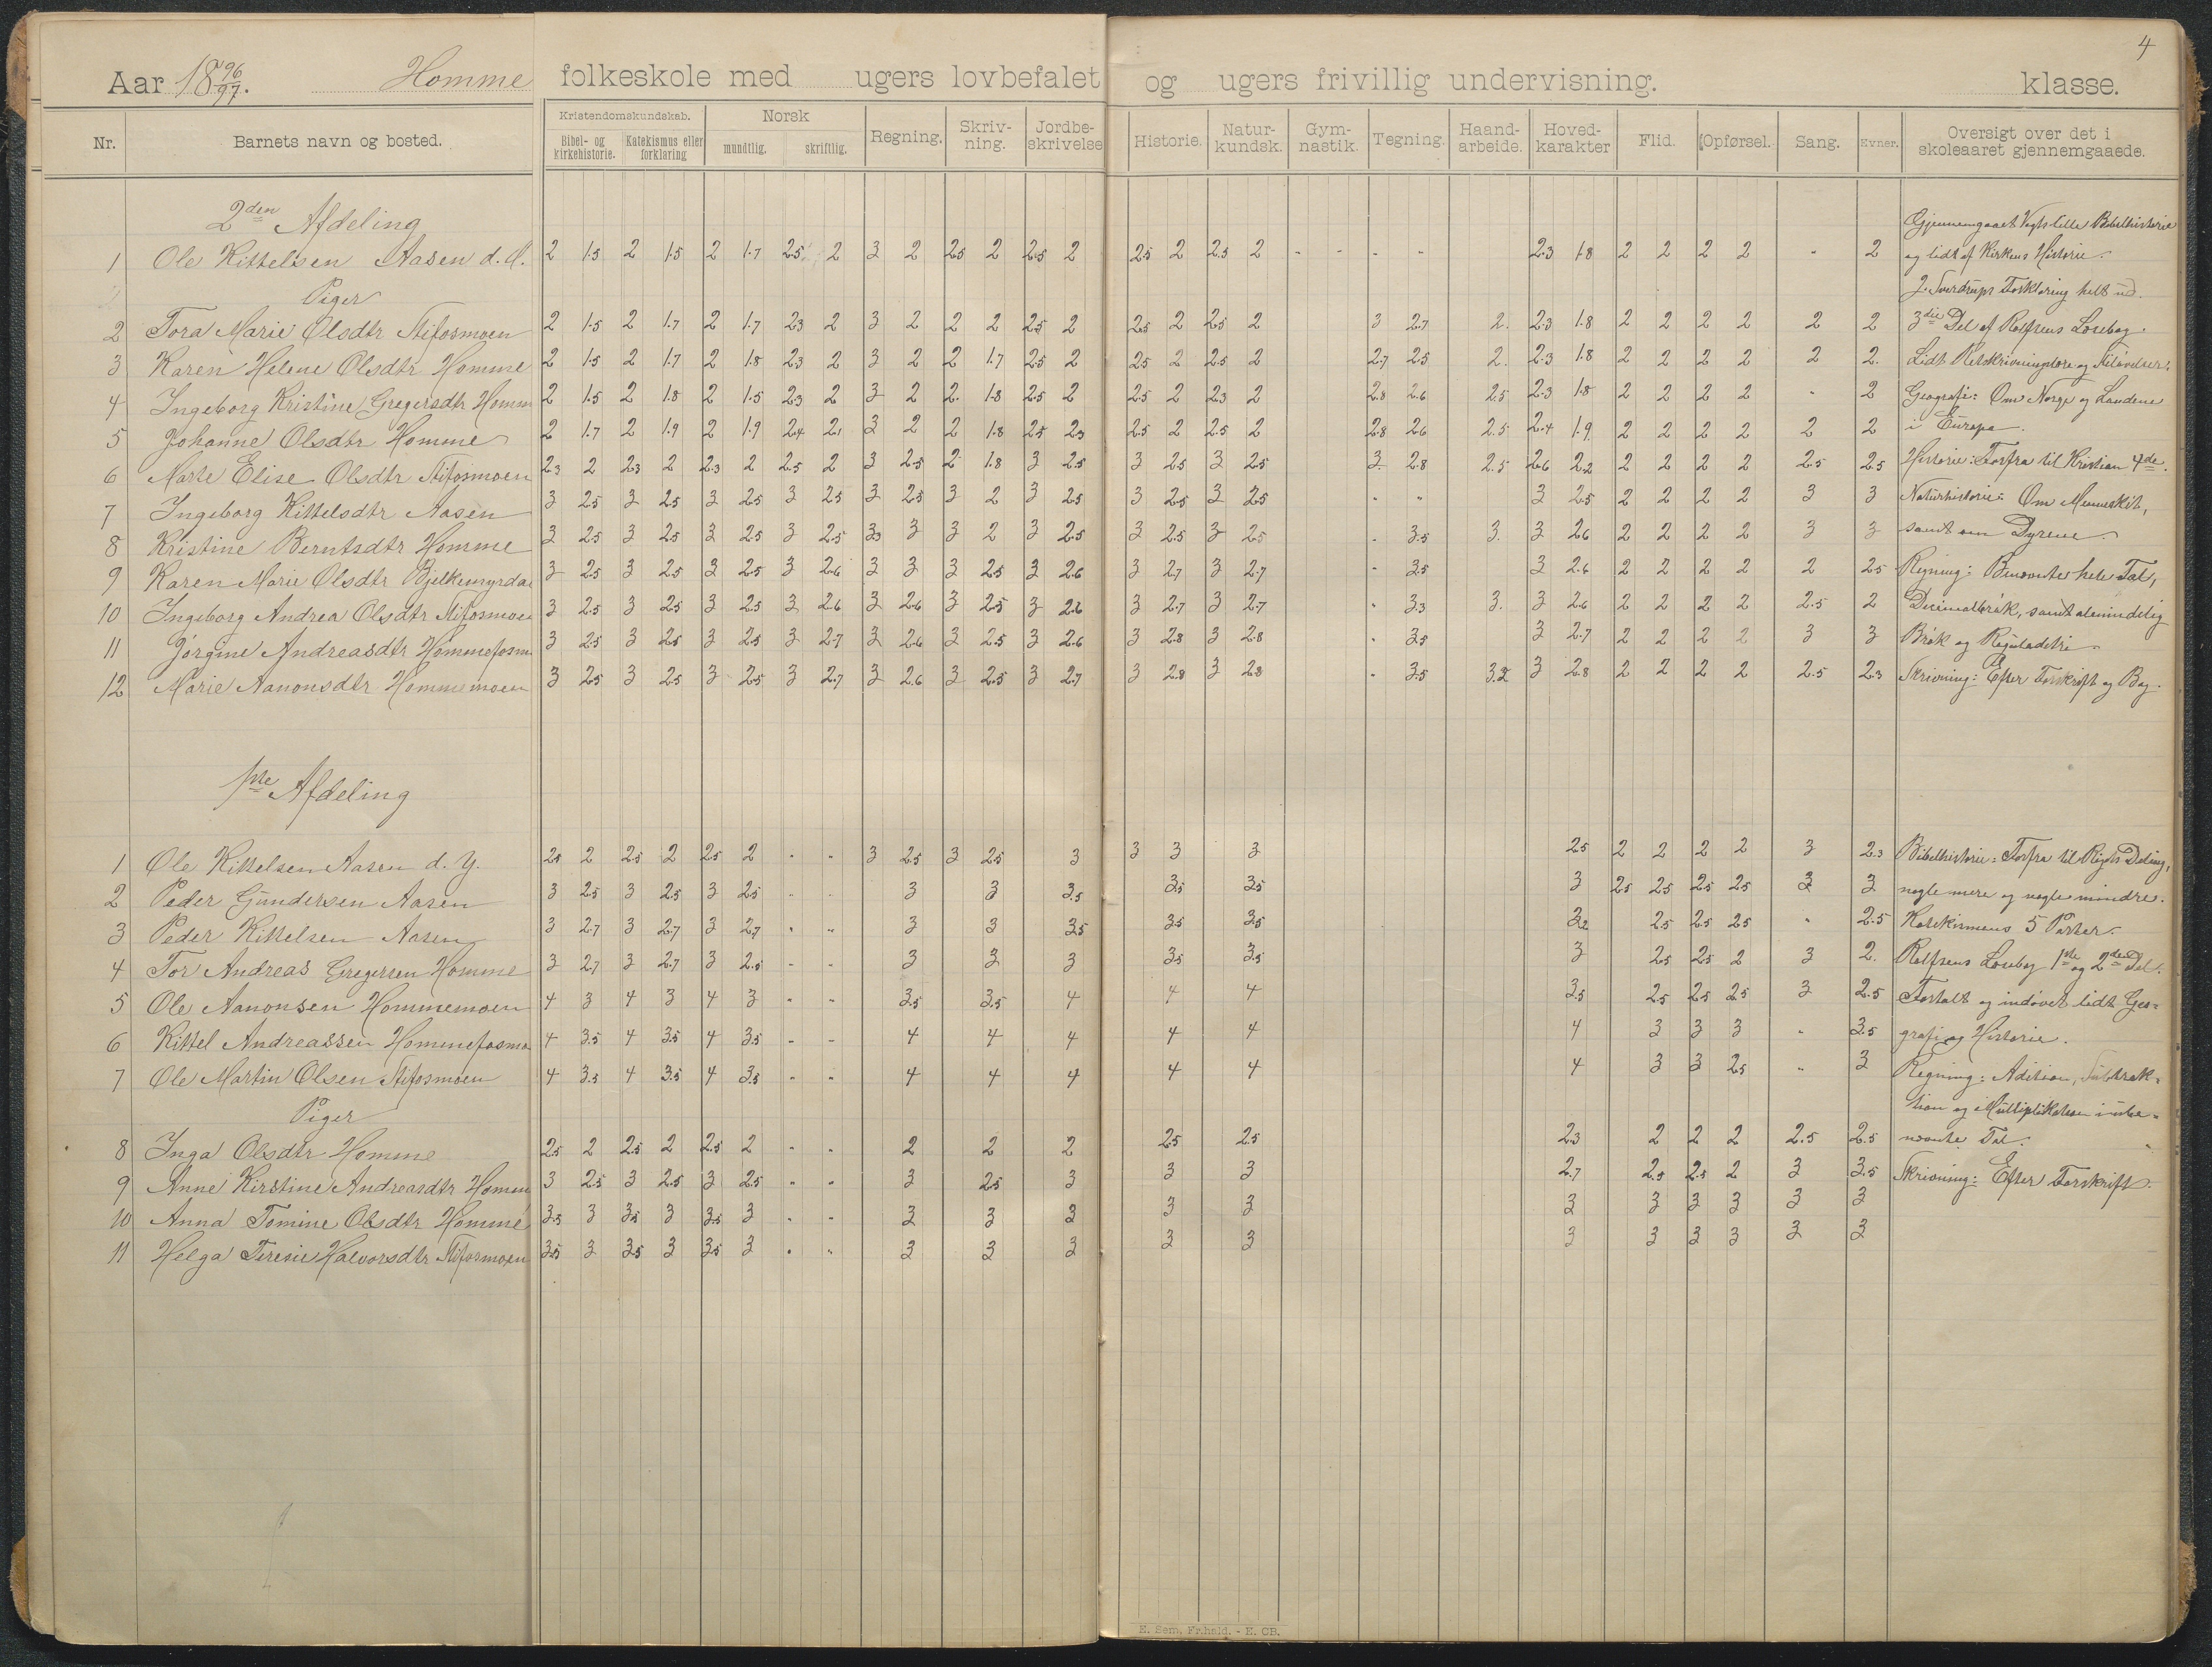 4
Aar 18 96/97. Homme folkeskole med ugers lovbefalet og ugers frivillig undervisning. klasse.
Nr. Barnets navn og bosted. Kristendomskundskab. Bibel- og kirkehistorie. Katekismus eller forklaring Norsk mundtlig. skriftlig. Regning. Skriv-ning. Jordbe-skrivelse Historie. Natur-kundsk. Gym-nastik. Tegning. Haand-arbeide. Hoved-karakter Flid. Opførsel. Sang. Evner. Oversigt over det i skoleaaret gjennemgaaede.
2den Afdeling Gjennemgaaet Vogts lille Bibelhistorie
1 Ole Kittelsen Aasen d. Æ. 2 1.5 2 1.5 2 1.7 2.5 2 3 2 2.5 2 2.5 2 2.5 2 2.5 2 - - - - 2.3 1.8 2 2 2 2 - 2 og lidt af Kirkens Historie.
Piger J. Sverdrups Forklaring helt ud.
2 Tora Marie Olsdtr Stifosmoen 2 1.5 2 1.7 2 1.7 2.3 2 3 2 2 2 2.5 2 2.5 2 2.5 2 3 2.7 2. 2.3 1.8 2 2 2 2 2 2 3die Del af Rolfsens Læsebog.
3 Karen Helene Olsdtr Homme 2 1.5 2 1.7 2 1.8 2.3 2 3 2 2 1.7 2.5 2 2.5 2 2.5 2 2.7 2.5 2. 2.3 1.8 2 2 2 2 2 2. Lidt Retskrivningslære og Stiløvelser.
4 Ingeborg Kristine Gregersdtr Homm 2 1.5 2 1.8 2 1.5 2.3 2 3 2 2. 1.8 2.5 2 2.5 2 2.3 2 2.8 2.6 2.5 2.3 1.8 2 2 2 2 - 2 Geografi: Om Norge og Landene
5 Johanne Olsdtr Homme 2 1.7 2 1.9 2 1.9 2.4 2.1 3 2 2 1.8 2.5 2.3 2.5 2 2.5 2 2.8 2.6 2.5 2.4 1.9 2 2 2 2 2 2 i Europa.
6 Marte Elise Olsdtr Stifosmoen 2.3 2 2.3 2 2.3 2 2.5 2 3 2.5 2 1.8 3 2.5 3 2.5 3 2.5 3 2.8 2.5 2.6 2.2 2 2 2 2 2.5 2.5 Historie: Forfra til Kristian 4de.
7 Ingeborg Kittelsdtr Aasen 3 2.5 3 2.5 3 2.5 3 2.5 3 2.5 3 2 3 2.5 3 2.5 3 2.5 - - 3 2.5 2 2 2 2 3 3 Naturhistorie: Om Mennesket,
8 Kristine Berntsdtr Homme 3 2.5 3 2.5 3 2.5 3 2.5 3.3 3 3 2 3 2.5 3 2.5 3 2.5 - 3.5 3. 3 2.6 2 2 2 2 3 3 samt om Dyrene.
9 Karen Marie Olsdtr Bjelkemyrdal 3 2.5 3 2.5 3 2.5 3 2.6 3 3 3 2.5 3 2.6 3 2.7 3 2.7 - 3.5 3 2.6 2 2 2 2 2 2.5 Regning: Benævnte hele Tal,
10 Ingeborg Andrea Olsdtr Stifosmoen 3 2.5 3 2.5 3 2.5 3 2.6 3 2.6 3 2.5 3 2.6 3 2.7 3 2.7 - 3.3 3. 3 2.6 2 2 2 2 2.5 2 Decimalbrøk, samt almindelig
11 Jörgine Andreasdtr Hommefosm 3 2.5 3 2.5 3 2.5 3 2.7 3 2.6 3 2.5 3 2.6 3 2.8 3 2.8 - 3.5 3 2.7 2 2 2 2 3 3 Brøk og Reguladetri.
12 Marie Aanonsdtr Hommemoen 3 2.5 3 2.5 3 2.5 3 2.7 3 2.6 3 2.5 3 2.7 3 2.8 3 2.8 - 3.5 3.2 3 2.8 2 2 2 2 2.5 2.3 Skrivning: Efter Forskrift og Bog.
1ste Afdeling
1 Ole Kittelsen Aasen d. Y. 2.5 2 2.5 2 2.5 2 - - 3 2.5 3 2.5 3 3 3 3 2.5 2 2 2 2 3 2.3 Bibelhistorie: Forfra til Rigets Deling,
2 Peder Gundersen Aasen 3 2.5 3 2.5 3 2.5 - - 3 3 3.5 3.5 3.5 3 2.5 2.5 2.5 2.5 3 3 nogle mere og nogle mindre.
3 Peder Kittelsen Aasen 3 2.7 3 2.7 3 2.7 - - 3 3 3.5 3.5 3.5 3.2 2.5 2.5 2.5 - 2.5 Katekismens 5 Parter.
4 Tor Andreas Gregersen Homme 3 2.7 3 2.7 3 2.5 - - 3 3 3 3.5 3.5 3 2.5 2.5 2 3 2. Rolfsens Læsebog 1ste og 2den Del.
5 Ole Aanonsen Hommemoen 4 3 4 3 4 3 - - 3.5 3.5 4 4 4 3.5 2.5 2.5 2.5 3 2.5 Fortalt og indøvet lidt Geo=
6 Kittel Andreassen Hommefosmo 4 3.5 4 3.5 4 3.5 - - 4 4 4 4 4 4 3 3 3 - 3.5 grafi og Historie.
7 Ole Martin Olsen Stifosmoen 4 3.5 4 3.5 4 3.5 - - 4 4 4 4 4 4 3 3 2.5 - 3 Regning: Adition, Subtrak=
Piger tion og Multiplikation i ube=
8 Inga Olsdtr Homme 2.5 2 2.5 2 2.5 2 - - 2 2 2 2.5 2.5 2.3 2 2 2 2.5 2.5 nævnte Tal.
9 Anne Kirstine Andreasdtr Homm 3 2.5 3 2.5 3 2.5 - - 3 2.5 3 3 3 2.7 2.5 2.5 2 3 3.5 Skrivning: Efter Forskrift.
10 Anna Tomine Olsdtr Homme 3.5 3 3.5 3 3.5 3 - - 3 3 3 3 3 3 3 3 3 3 3
11 Helga Teresie Halvorsdtr Stifosmoen 3.5 3 3.5 3 3.5 3 - - 3 3 3 3 3 3 3 3 3 3 3
E. Sem, Fr.hald. - E. CB.